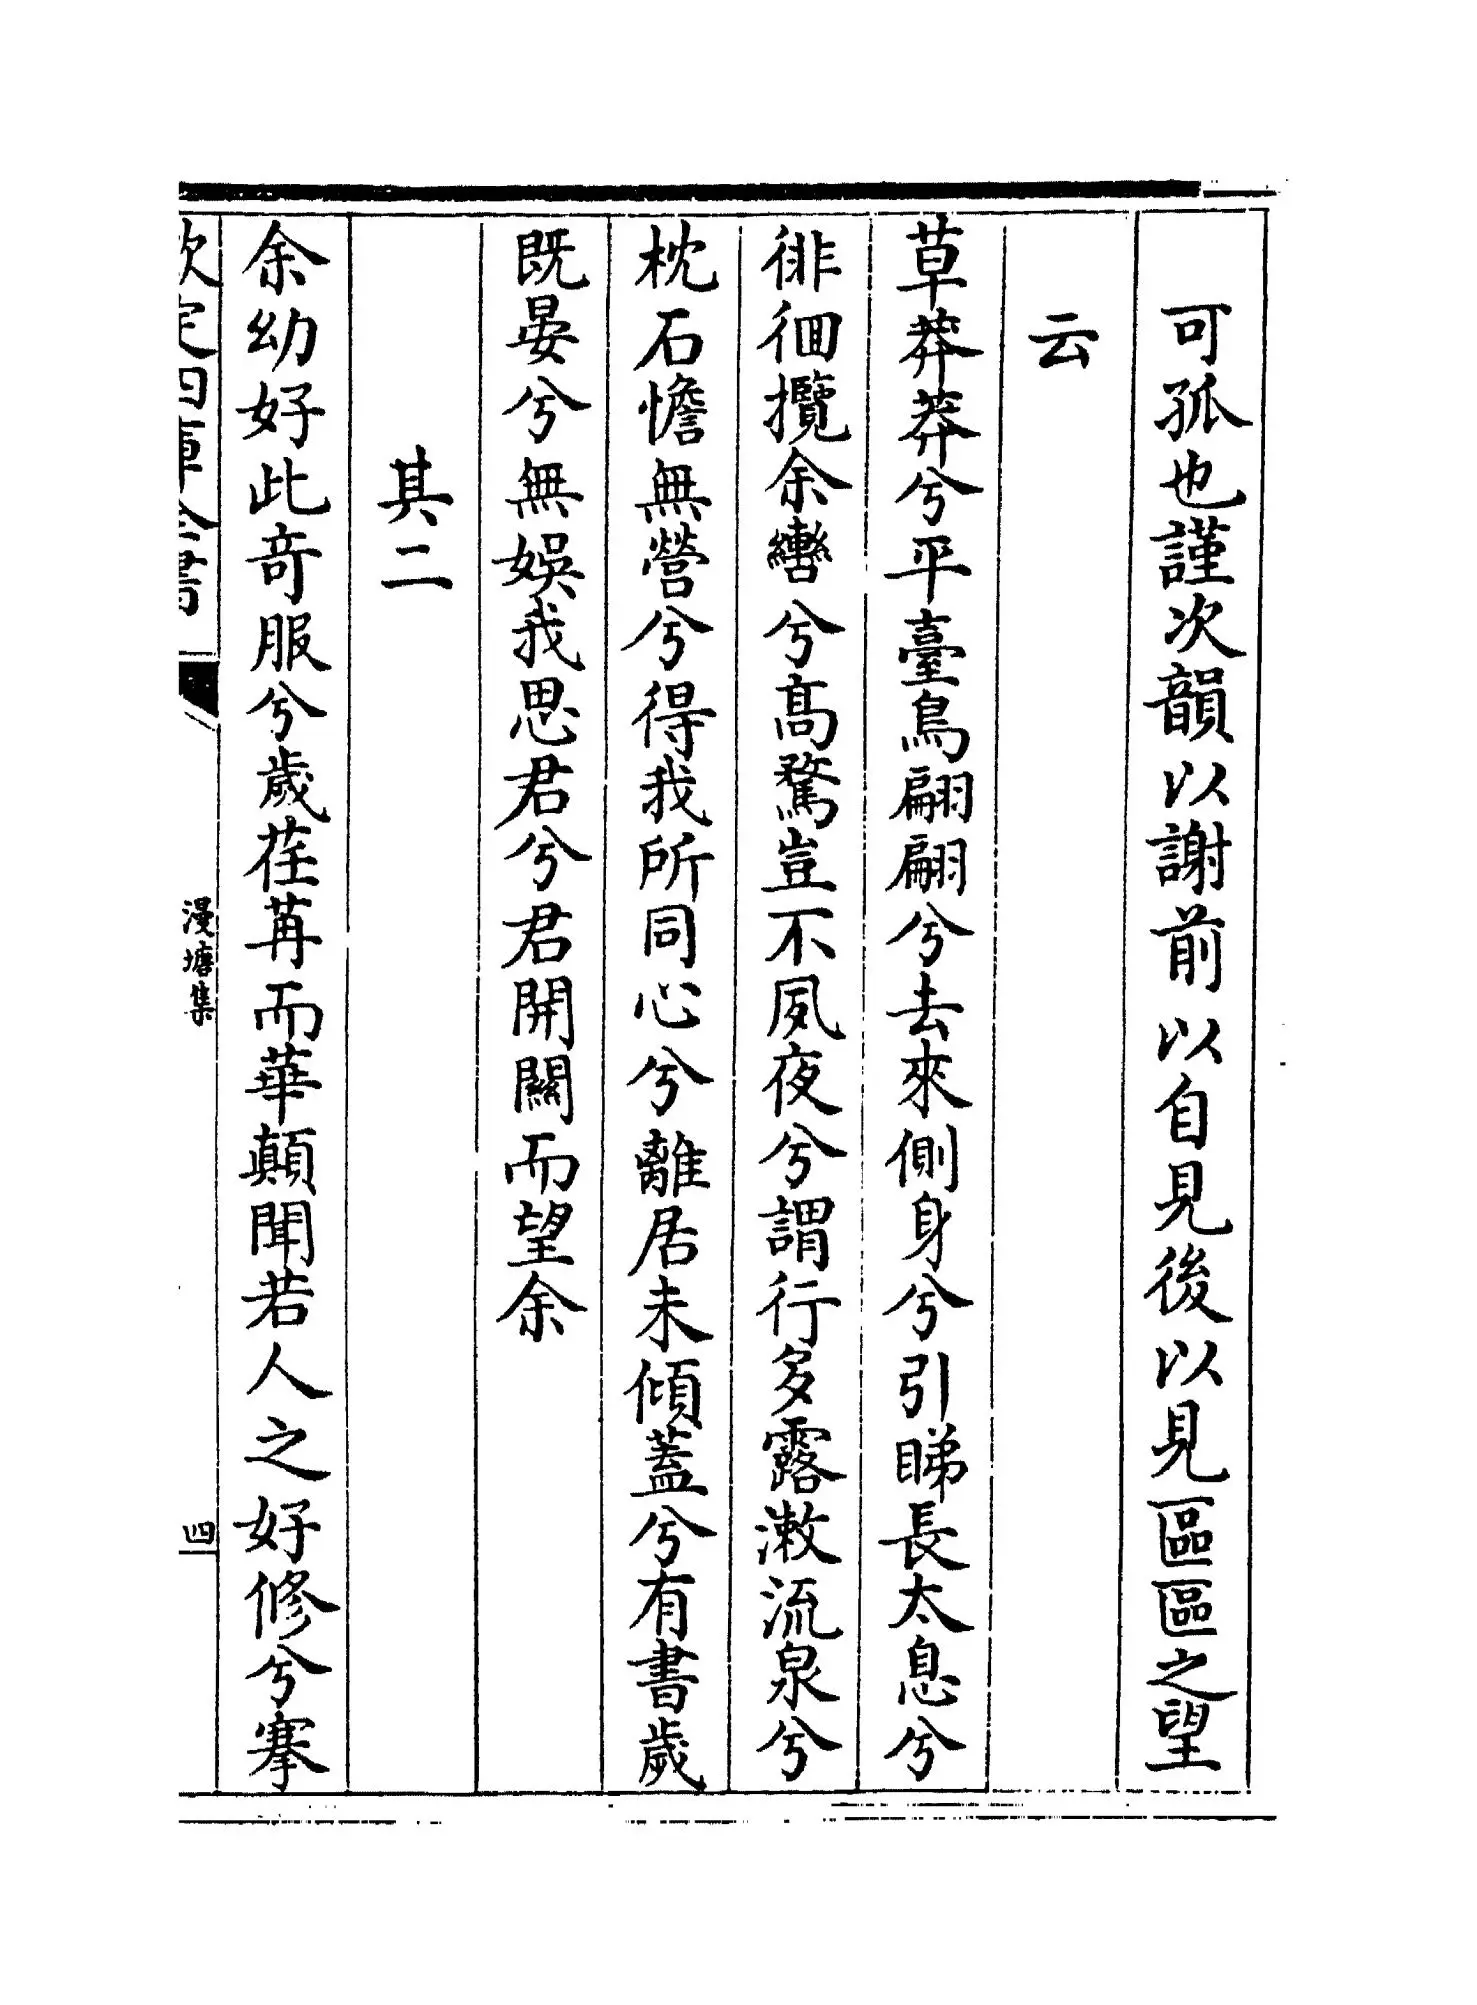 可孤也謹次韻以謝前以自見後以見區區之望
云
草莽莽兮平臺鳥翩翩兮去來側身兮引睇長太息兮
徘徊攬余轡兮高騖豈不夙夜兮謂行多露漱流泉兮
枕石憺無營兮得我所同心兮離居未傾蓋兮有書歲
既晏兮無娛我思君兮君開關而望余
其二
余幼好此竒服兮歲荏苒而華顛聞若人之好修兮搴
欽定四庫全書
漫塘集
四